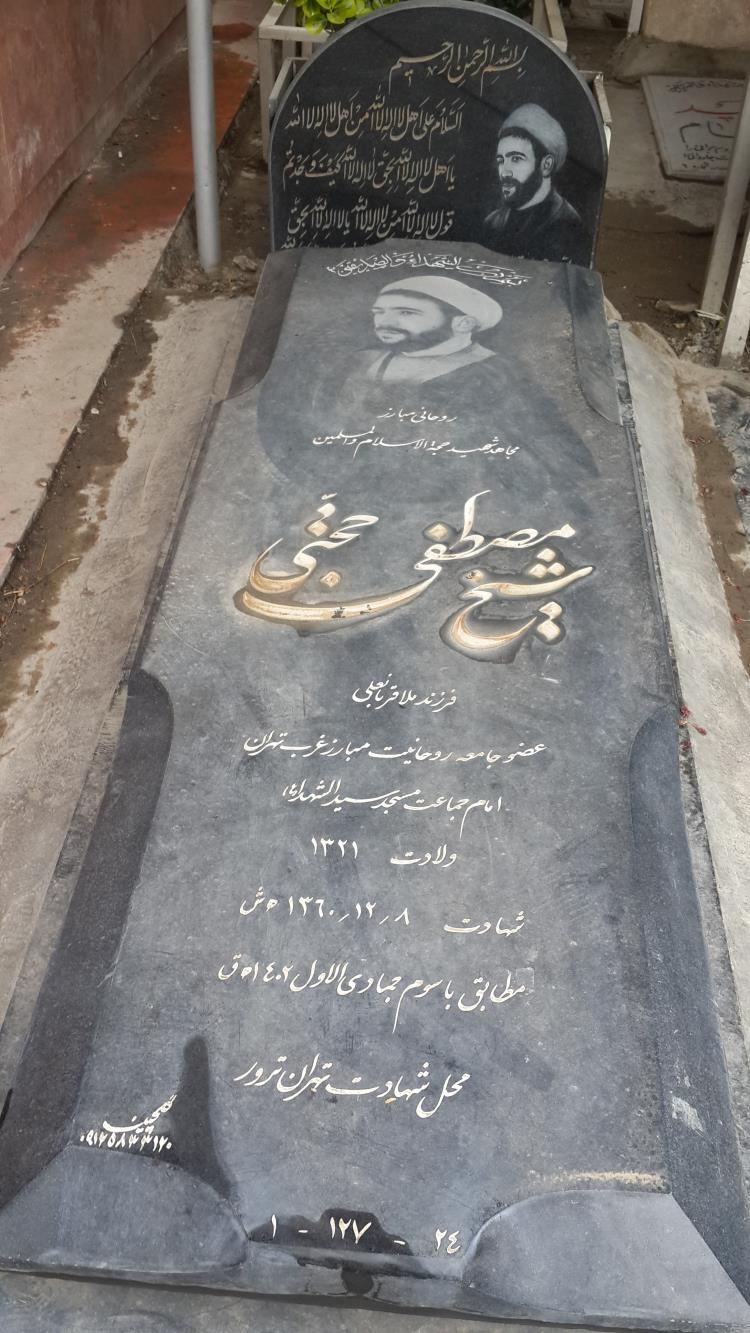 بسم الله الرحمن الرحیم
السلام علی اهل لا اله الا الله من اهل لا اله الا الله
یا اهل لا اله الا الله بحق لا اله الا الله کیف وجدتم
قول لا اله الا الله من لا اله الا الله یا لا اله الا الله بحق
الشهداء و الصدیقین
روحانی مبارز
مجاهد شهید حجة الاسلام والمسلمین
شیخ مصطفی حجتی
فرزند ملا قربانعلی
عضو جامعه روحانیت مبارز غرب تهران
امام جماعت مسجد سید الشهداء
ولادت ۱۳۲۱
شهادت ۱۳٦۰٫۱۲٫۸ ه ش
مطابق با سوم جمادی الاول ۱٤۰۲ ه ق
محل شهادت تهران ترور
۲٤ - ۱۲۷ - ۱